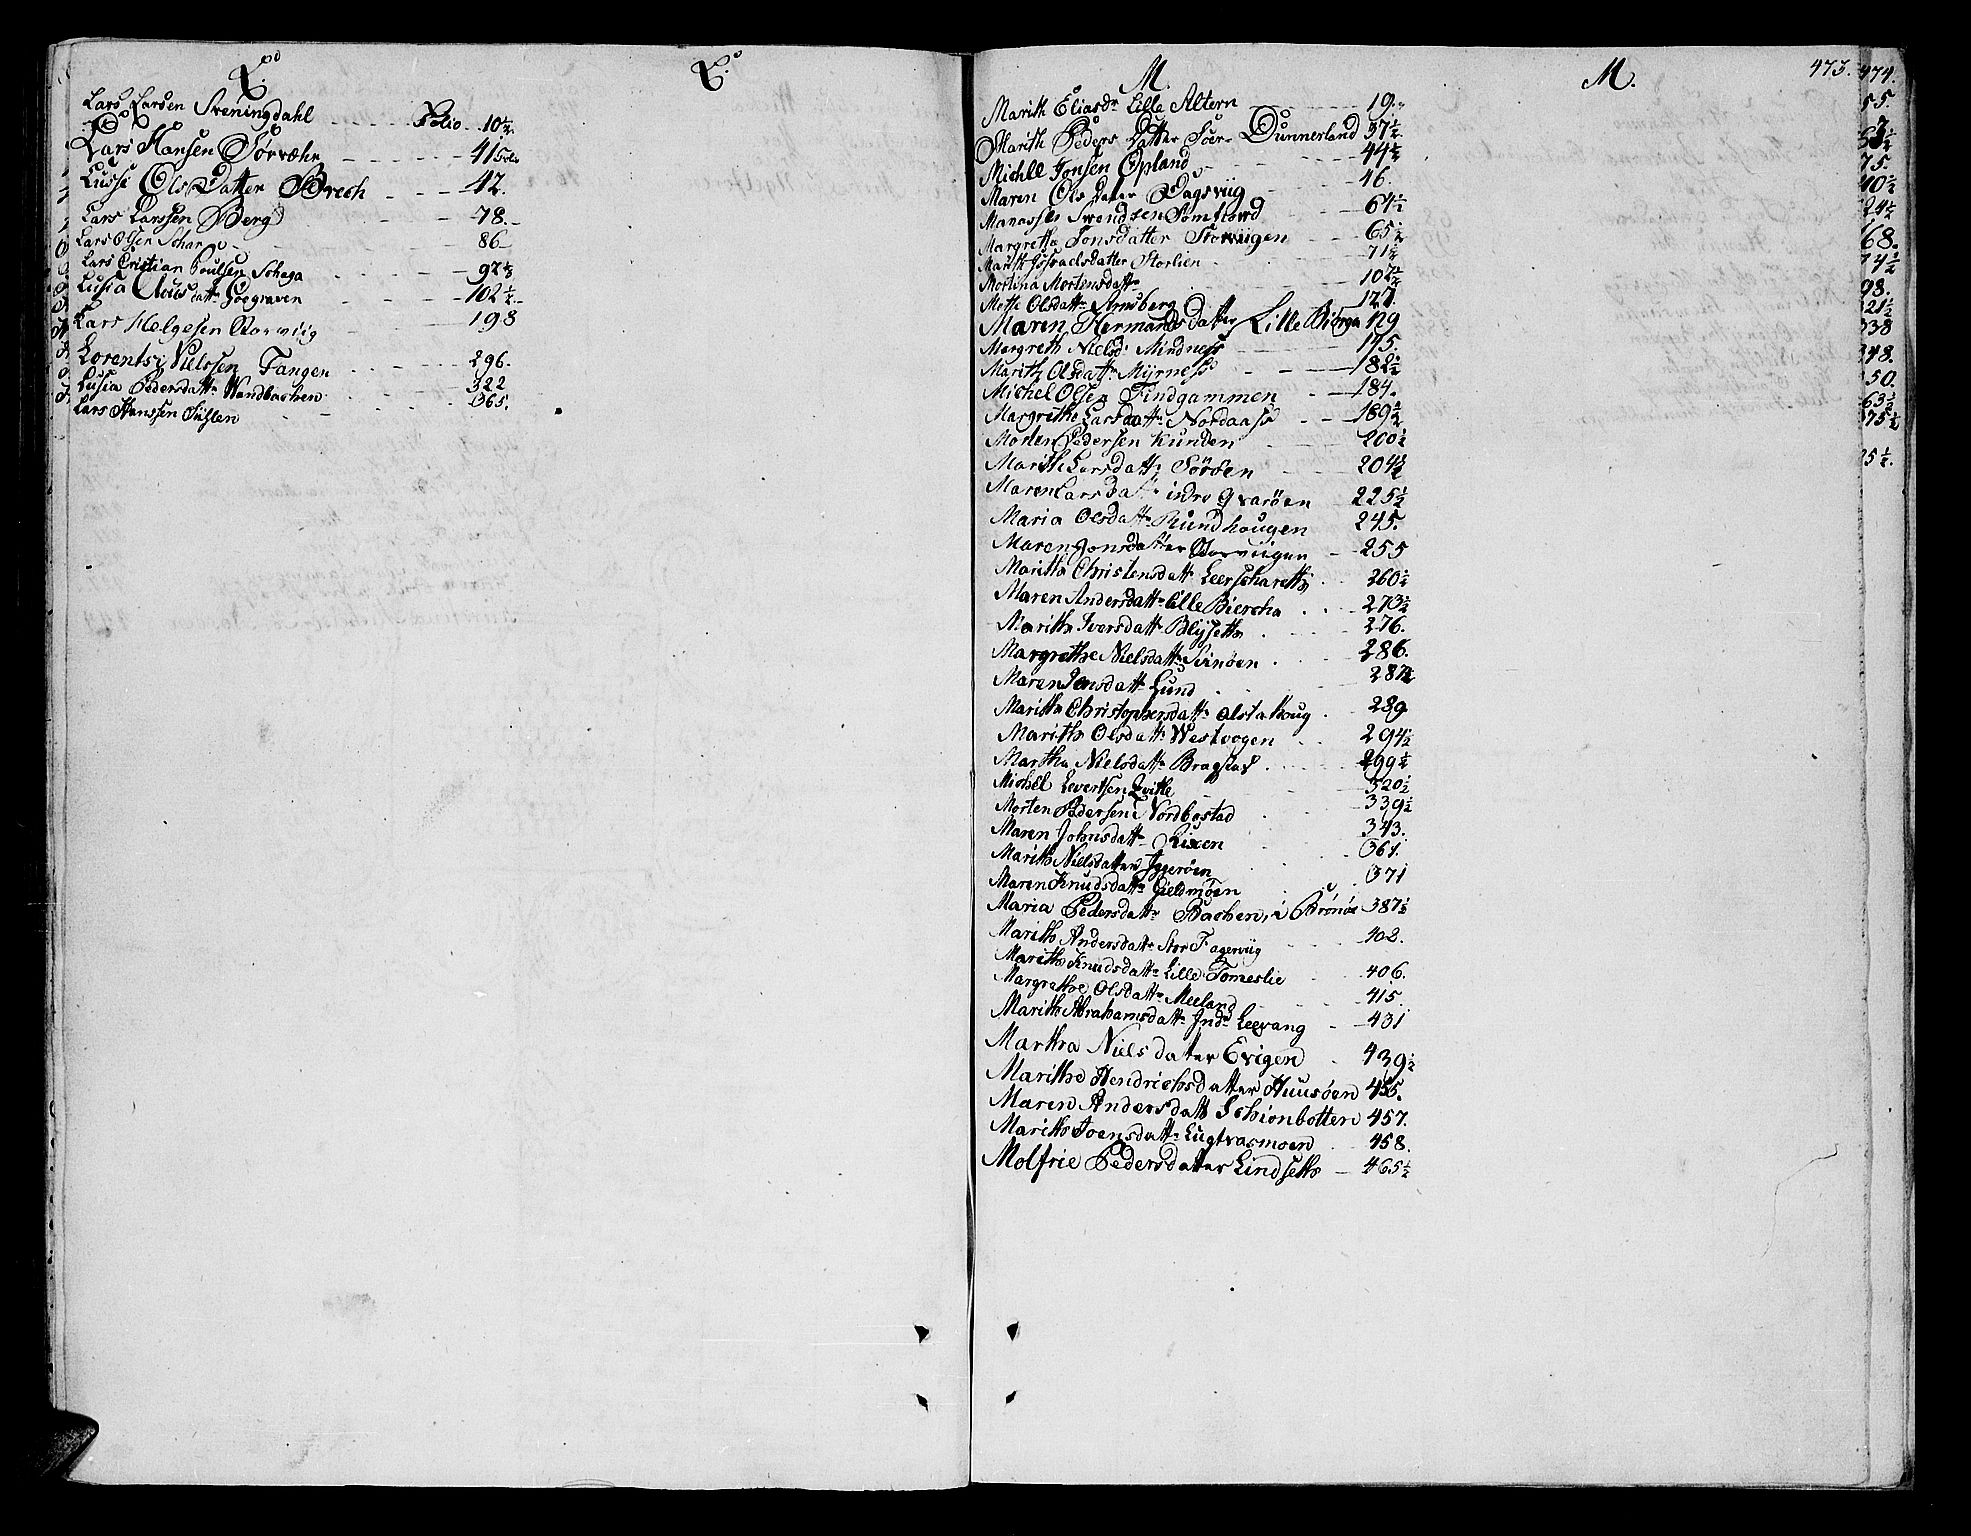 L.
Lars Larsen Sveningdahl - - - - Folio - 10½.
Lars Hansen Sörvæhr - - - - 41
Lussi Ols Datter Brech - - - 42.
Lars Larssen Berg - - - 78.
Lars Olsen Schar - - - 86
Lars Cristian Poulsen Schaga - - - 92½
Lusia Clausdattr Söegraven - - - 102½
Lars Helgesen Storviig - - - 198
Lorents Nielssen Tangen - - - 296.
Lusia Pedersdattr Wandbachen - - - 322
Lars Hanssen Süllen - - - 365.
L.
M.
Marith Eliasdr Lille Altern - - - 19.
Marith Peders Datter Soer Dunnerland 37½.
Michll Jonsen Opland - - - 44½
Maren Ols dater Dagsviig - - - 46.
Manasses Svendsen Somhovd - - - 64½
Margretha Jonsdatter Storviigen - - - 65½
Marith Issraelsdatter Storlien - - - 71½
Mortina Mortensdattr - - - 102½
Mette Olsdattr Arnsberg - - - 127.
Maren Hermandsdatter Lille Bierga 129
Margreth Nielsdr Mindness - - - 175.
Marith Olsdattr Myrness - - - 182½
Michel Olsen Findgammen - - - 184.
Margrithe Larsdattr Nordaass - - - 189½
Morten Pedersen Kunden - - - 200½
Marith Larsdattr Sörden - - - 204½
Maren Larsdattr indre Qvaröen 225½
Maria Olsdattr Rundhougen 245.
Maren Jonsdatter Storviigen - - 255
Maritha Christensdattr Leerscharetth - - 260½
Maren Andersdattr Lille Biercha - - - 273½
Maritha Iversdattr Blysetth - - - 276.
Margrethe Nielsdattr Svinöen - - - 286.
Maren Jensdattr Lund - - - 287½
Maritha Christophersdattr Alstahoug - 289
Marith Olsdattr Westvogen - - 294½
Martha Nielsdattr Bragstad - - - 299½
Michel Evertsen Qvitle - - - 320½
Morten Pedersen Nordbostad - - - 339½
Maren Johnsdattr Rixen - - - 343.
Marith Nielsdatter Iggeröen - - - 361.
Maren Knudsdattr Gieldmöen - - - 371
Maria Pedersdattr Bachen, i Brönöe 387½
Marith Andersdattr Stor Fagerviig - - - 402.
Marith Knudsdattr Lille Tomeslie - - 406.
Margrethe Olsdattr Meeland - - - 415.
Marith Abrahamsdattr Indr Leevang - - 431
Martha Niels dater Evigen - 439½
Marithe Hendrichsdatter Huusöen 455.
Maren Andersdatt Schionbotten 457.
Marith Joensdattr Lugtvasmoen - 458.
Molfrie Pedersdatter Lindseth - 465½
M.
473.
474.
55.
75
68.
98.
338
348.
50.